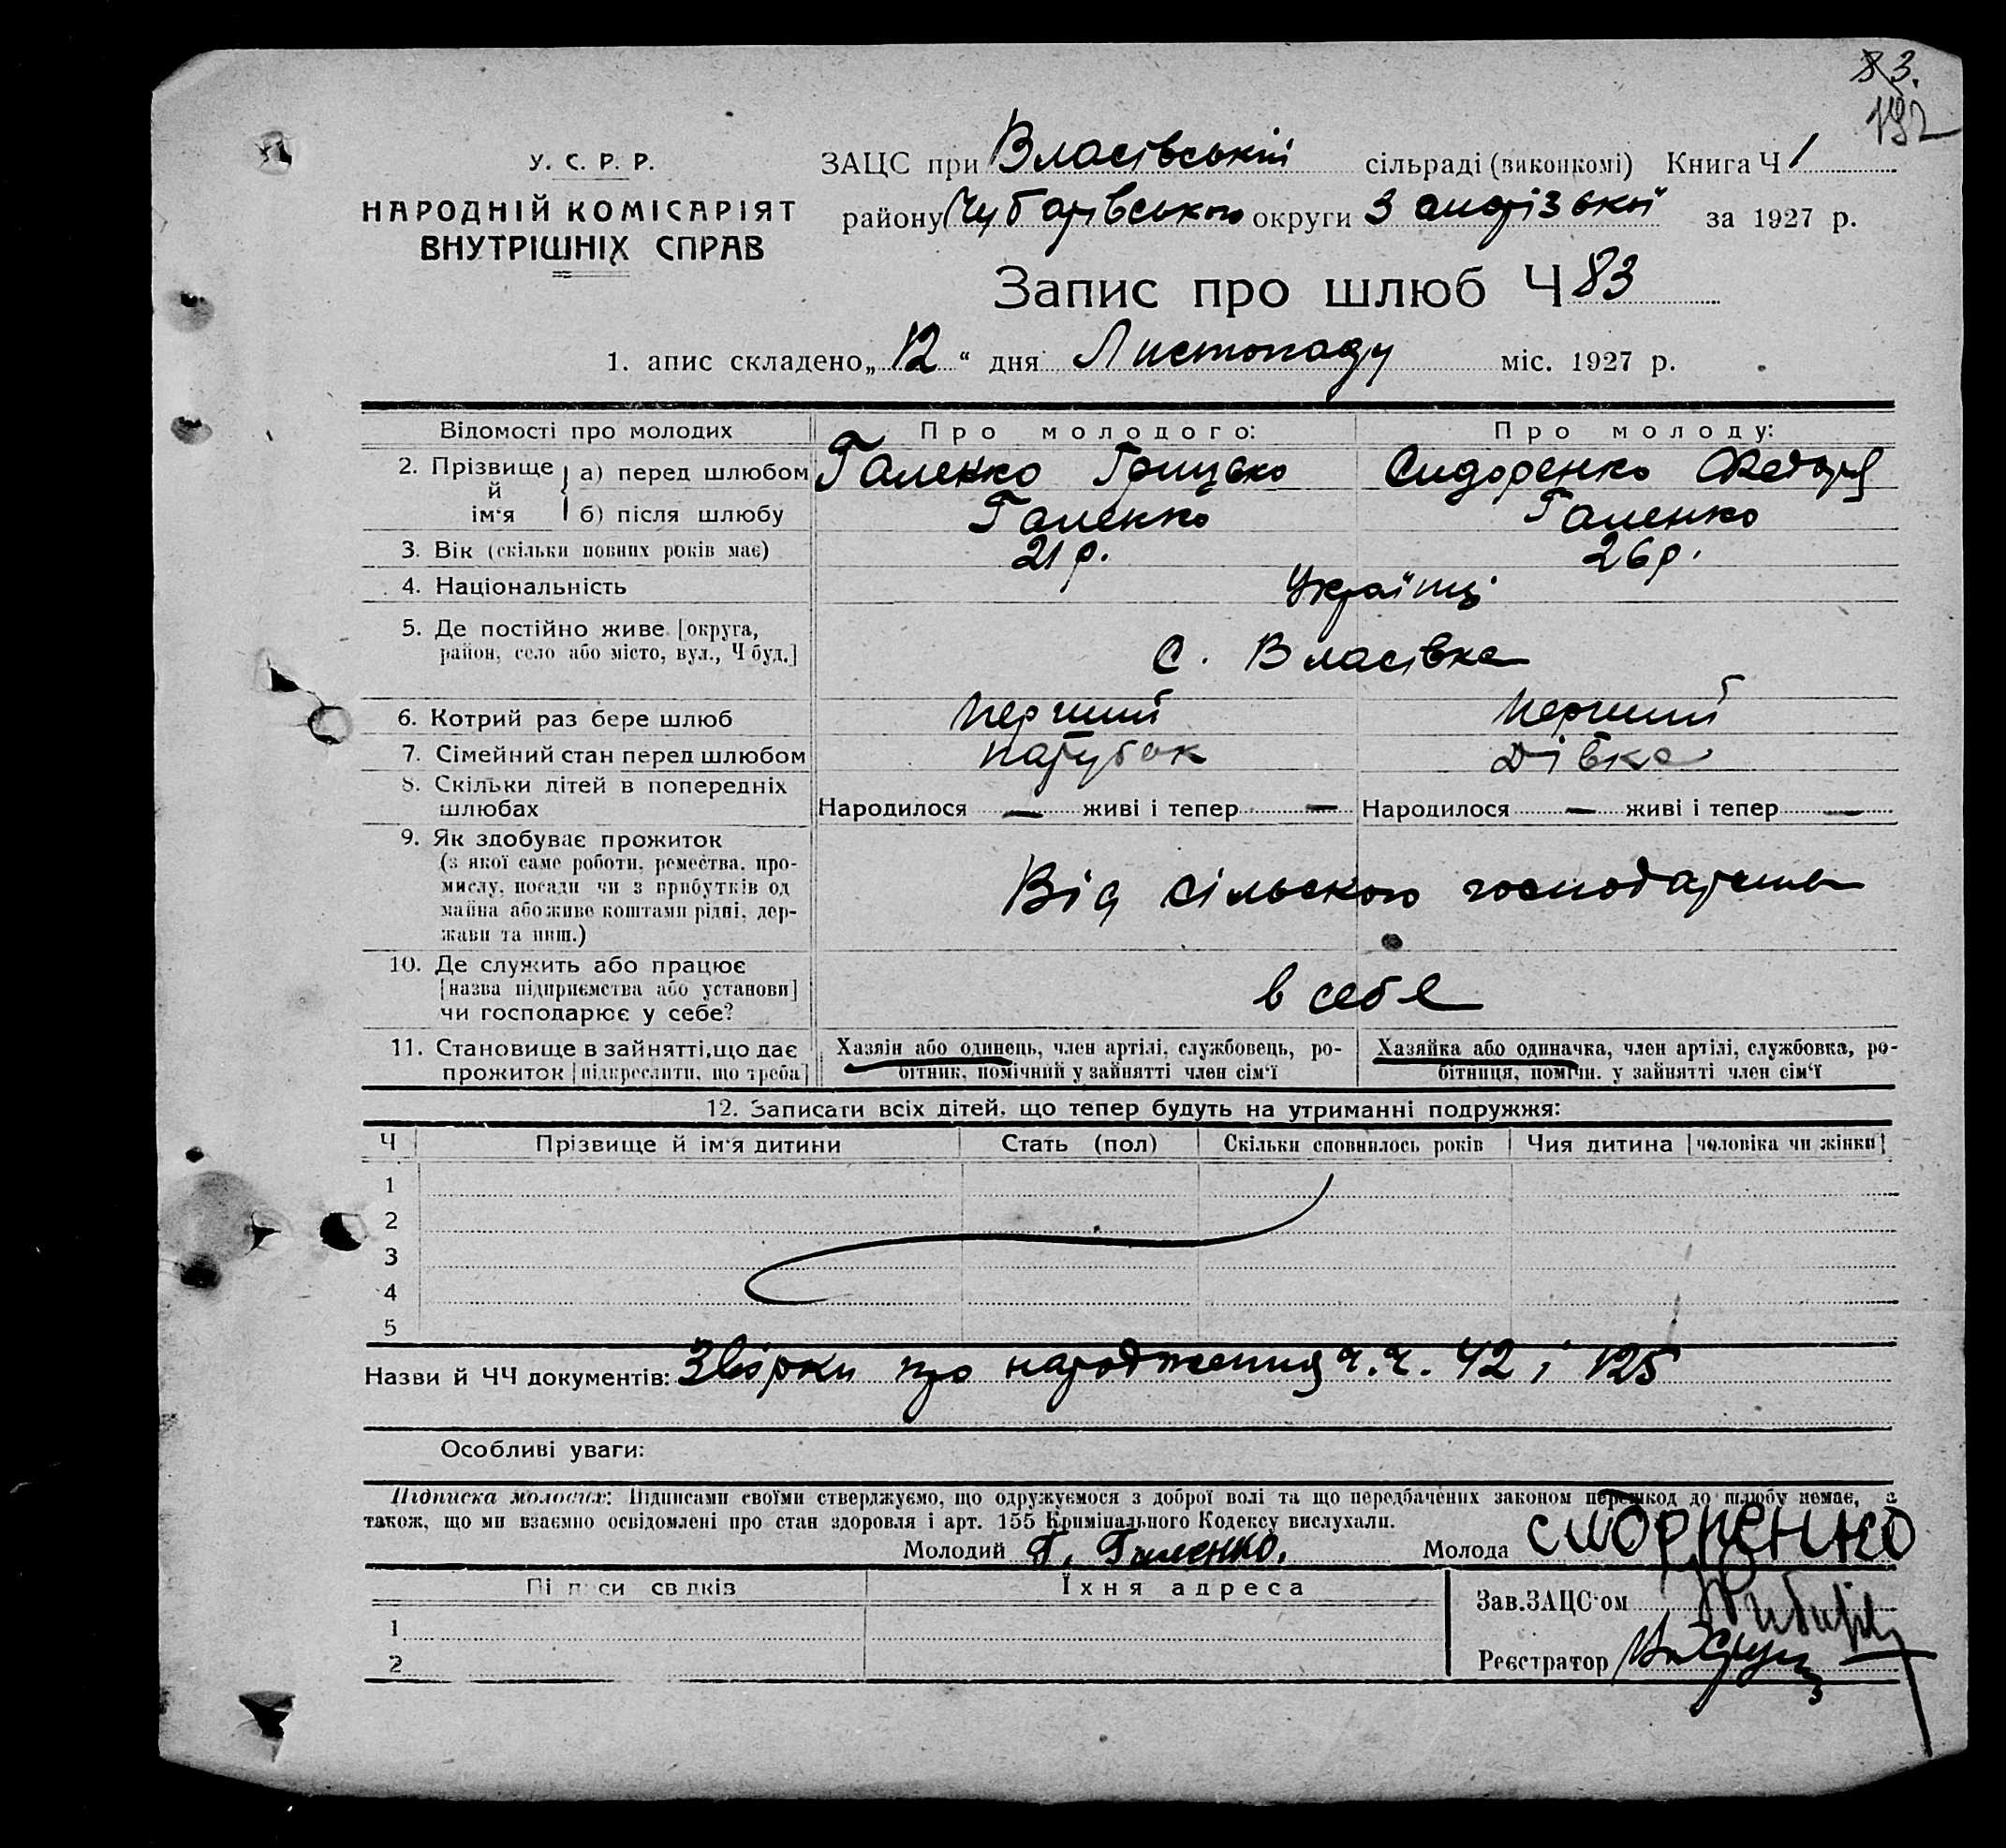 83.
192
У. С. Р. Р.
НАРОДНІЙ КОМІСАРІЯТ
ВНУТРІШНІХ СПРАВ
ЗАЦС при Власівській сільраді (виконкомі) Книга Ч 1
району Чубарівського округи Запорізької за 1927 р.
Запис про шлюб Ч 83
1. апис складено „ 12 “ дня Листопаду міс. 1927 р.
Відомості про молодих Про молодого: Про молоду:
2. Прізвище й ім‘я а) перед шлюбом Галенко Грицько Сидоренко Федора
б) після шлюбу Галенко Галенко
3. Вік (скільки повних років має) 21 р. 26 р.
4. Національність Українці
5. Де постійно живе [округа,
район, село або місто, вул., Ч буд.] С. Власівка
6. Котрий раз бере шлюб перший перший
7. Сімейний стан перед шлюбом парубок дівка
8. Скільки дітей в попередніх
шлюбах Народилося — живі і тепер — Народилося — живі і тепер —
9. Як здобуває прожиток
(з якої саме роботи, ремества, про-
мислу, посади чи з прибутків од
майна або живе коштами рідні, дер-
жави та инш.) Від сільського господарства
10. Де служить або працює
[назва підприємства або установи]
чи господарює у себе? в себе
11. Становище в зайнятті, що дає
прожиток [підкреслити, що треба]
Хазяїн або одинець, член артілі, службовець, ро-
бітник, помічний у зайнятті член сім‘ї
Хазяйка або одиначка, член артілі, службовка, ро-
бітниця, помічн. у зайнятті член сім‘ї
12. Записати всіх дітей, що тепер будуть на утриманні подружжя:
Ч Прізвище й ім‘я дитини Стать (пол) Скільки сповнилось років Чия дитина [чоловіка чи жінки]
1
2
3
4
5
Назви й ЧЧ документів: Звірки про народження ч.ч. 42 і 125
Особливі уваги:
Підписка молодих: Підписами своїми стверджуємо, що одружуємося з доброї волі та що передбачених законом перешкод до шлюбу немає, а
також, що ми взаємно освідомлені про стан здоровля і арт. 155 Кримінального Кодексу вислухали.
Молодий Г. Галенко. Молода
Пі писи св дків Їхня адреса
Зав. ЗАЦС‘ом
1
Реєстратор
2